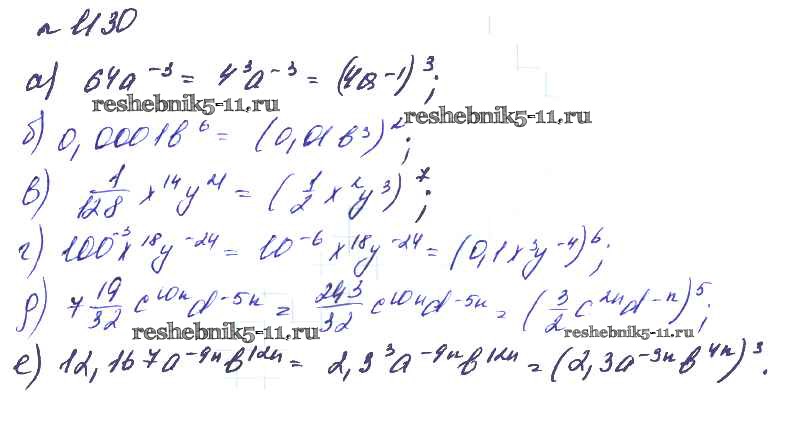 № 1130
а) 64a⁻³ = 4³a⁻³ = (4a⁻¹)³;
reshebnik5-11.ru
reshebnik5-11.ru
б) 0,0001b⁶ = (0,01b³)²;
в) 1/128 x¹⁴y²¹ = (1/2 x²y³)⁷;
г) 100⁻³x¹⁸y⁻²⁴ = 10⁻⁶x¹⁸y⁻²⁴ = (0,1x³y⁻⁴)⁶;
д) 7 19/32 c¹⁰ⁿd⁻⁵ⁿ = 243/32 c¹⁰ⁿd⁻⁵ⁿ = (3/2 c²ⁿd⁻ⁿ)⁵;
reshebnik5-11.ru
reshebnik5-11.ru
е) 12,167a⁻⁹ⁿb¹²ⁿ = 2,3³a⁻⁹ⁿb¹²ⁿ = (2,3a⁻³ⁿb⁴ⁿ)³.